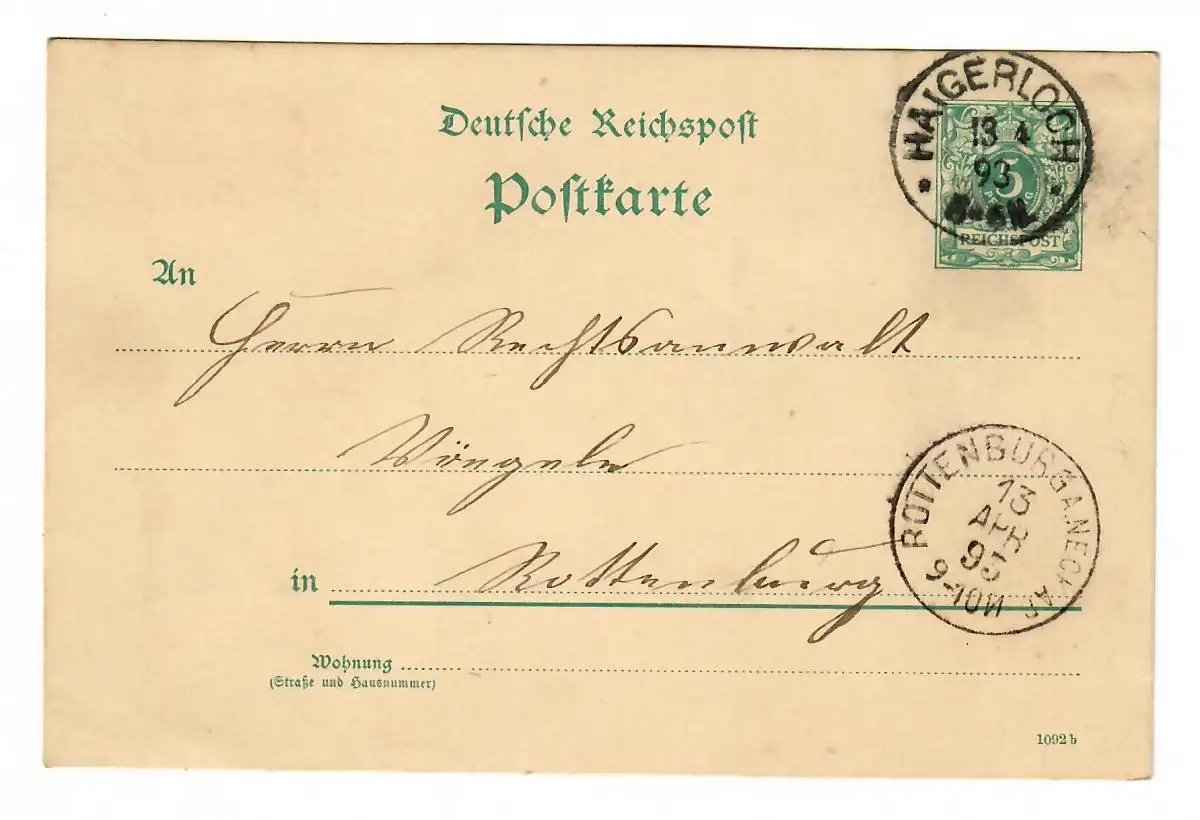 Deutsche Reichspost
Postkarte
HAIGERLOCH
13 4
93
5
REICHSPOST
An
Herrn Rechtsanwalt
Vöegele
in Rottenburg
ROTTENBURG A. NECKAR
13
APR
93
9-10N
Wohnung
(Straße und Hausnummer)
1092 b